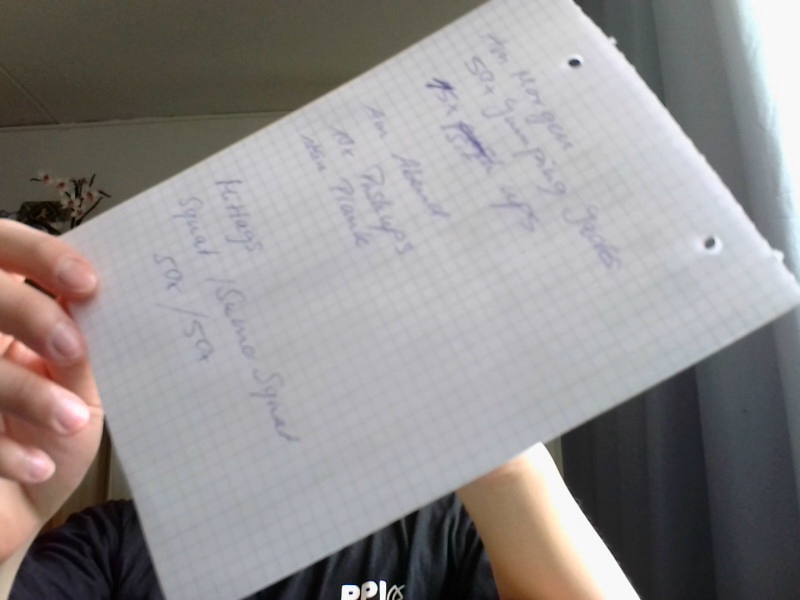 Am Morgen
50x Jumping Jacks
15x ups
Am Abend
Pushups
Plank
Mittags
Squat / Sumo Squat
50x / 50x
PPI